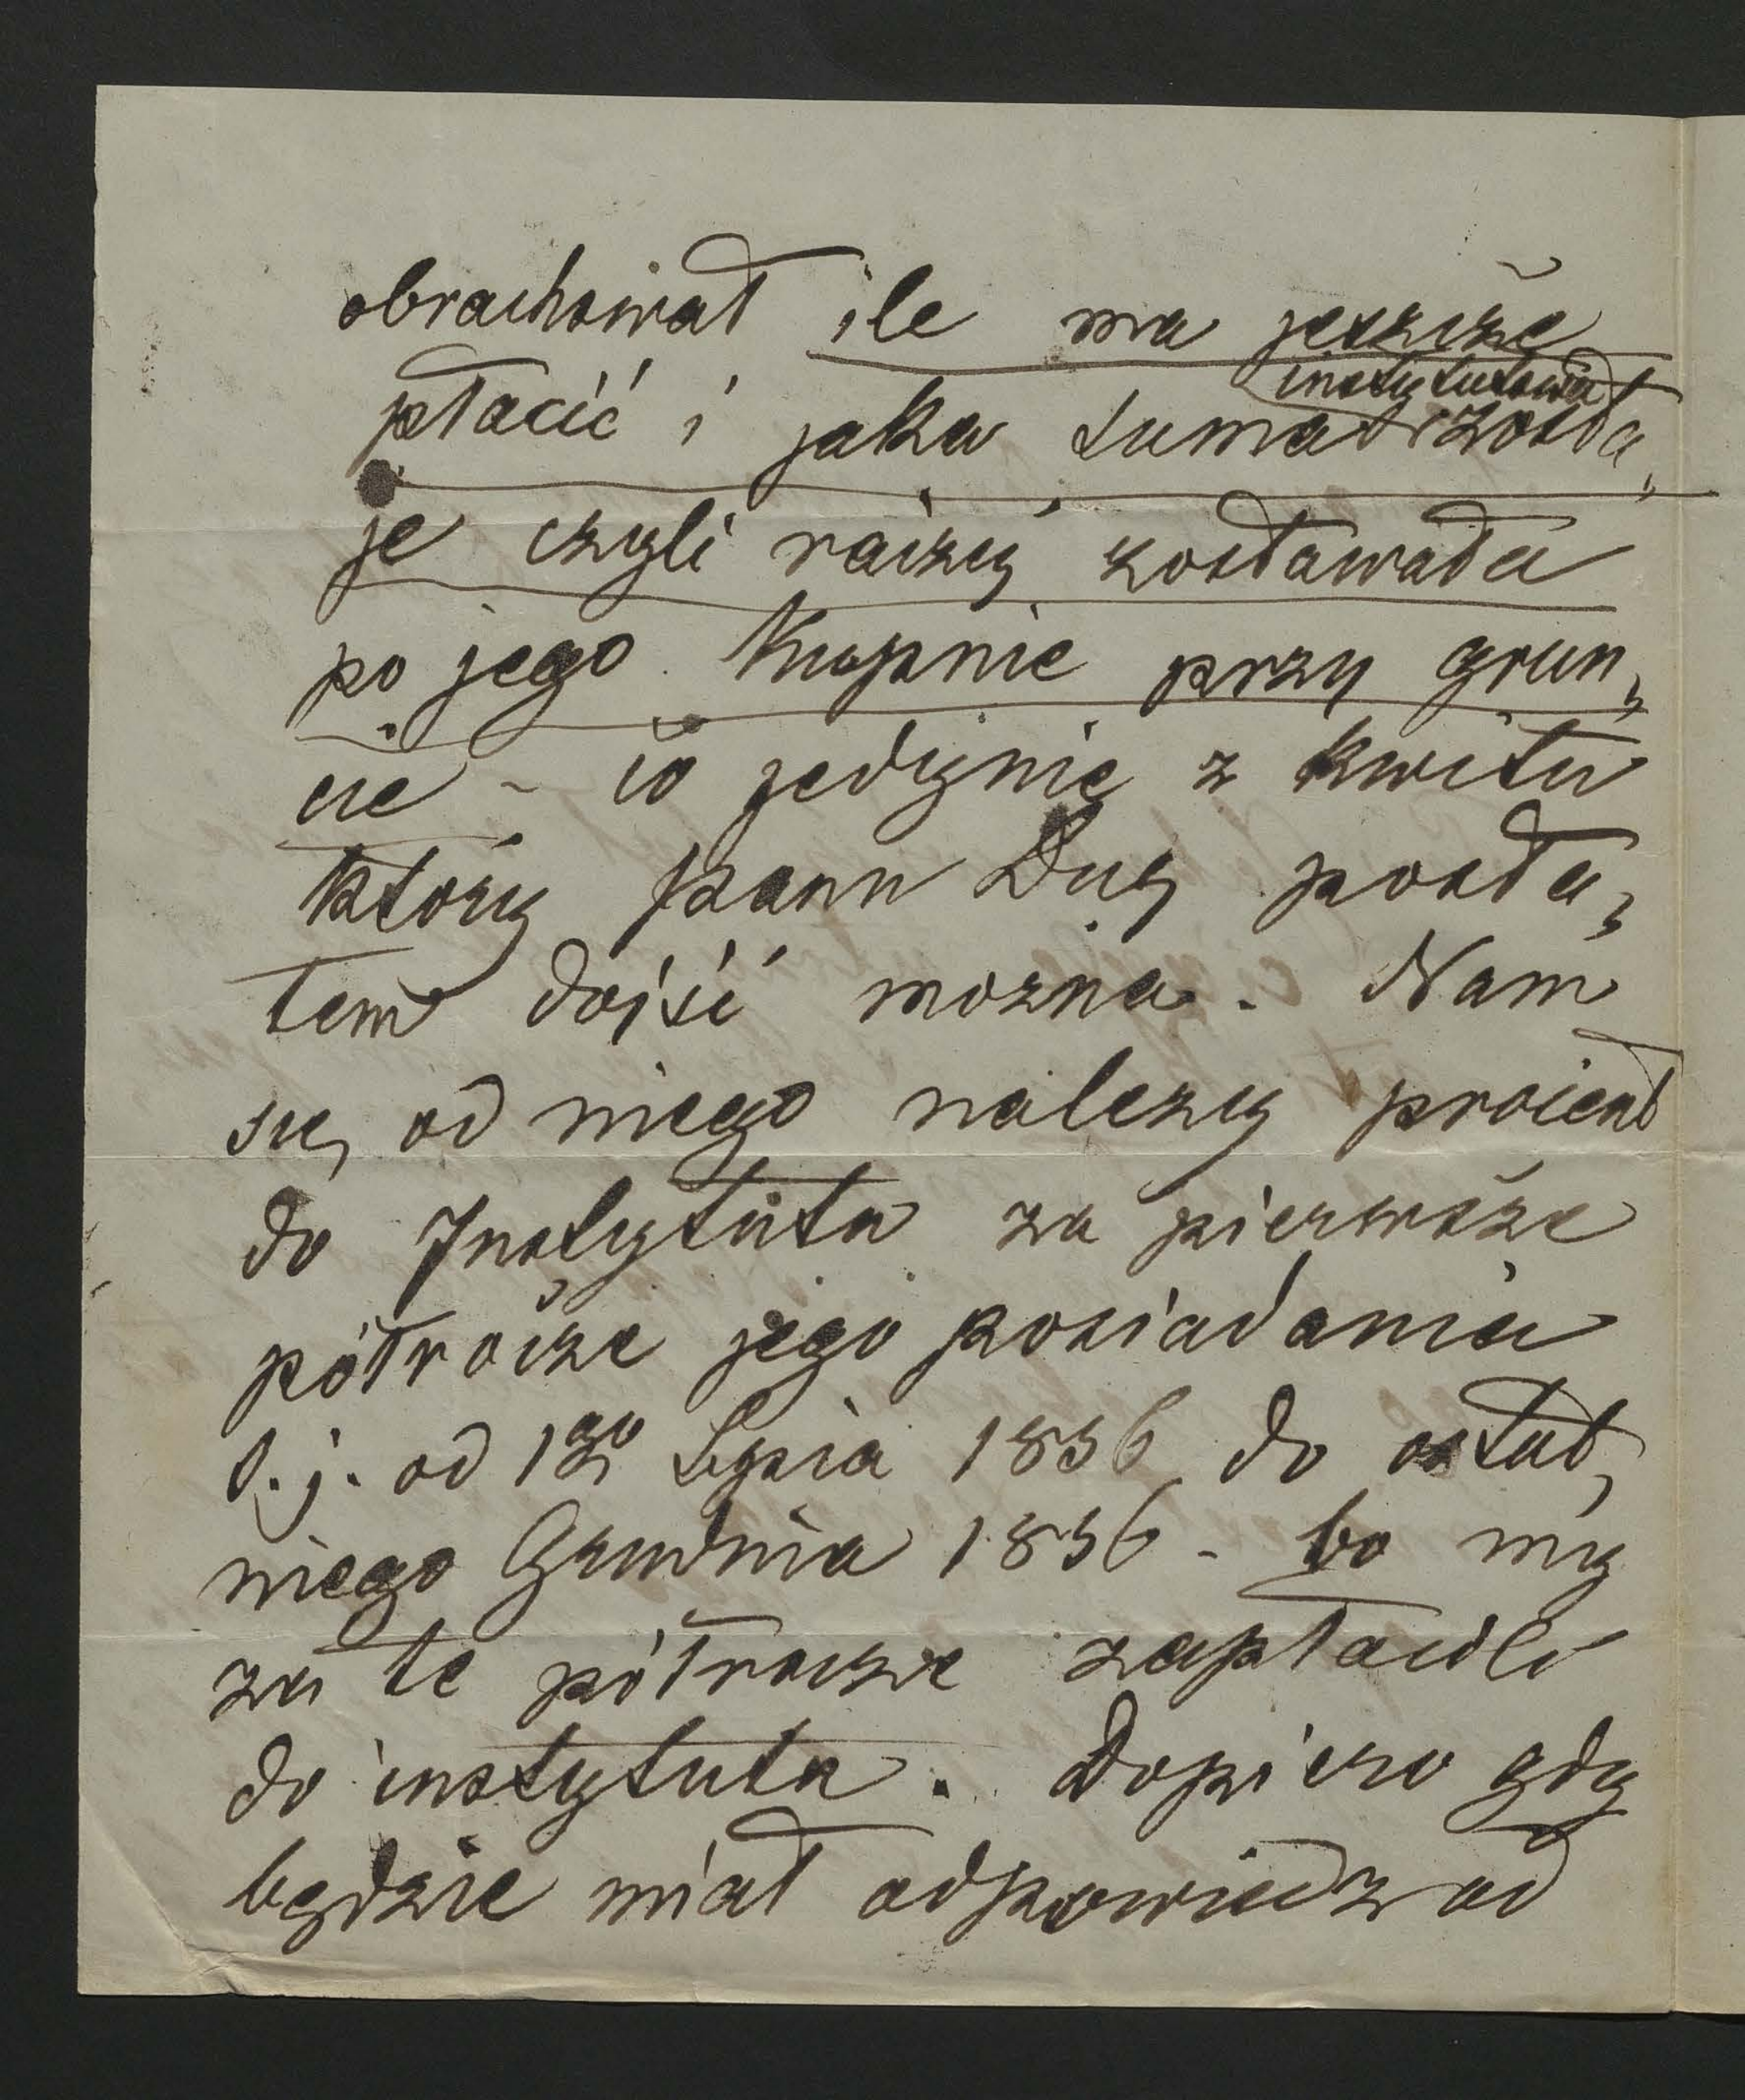 obrachował ile ma jeszcze
płacić i jaka suma instytutowa zosta„
je czyli raczej zostawała
po jego Kupnie przy grun„
cie – co jedynie z kwitu
który panu Duz posła„
łem dojść mozna. Nam
się od niego nalezy procent
do Instytutu za pierwsze
półrocze jego posiadania
t.j. od 1go Lipca 1856 do ostat„
niego Grudnia 1856 – bo my
za te półrocze zapłacili
do instytutu. Dopiero gdy
będzie miał odpowiedz od